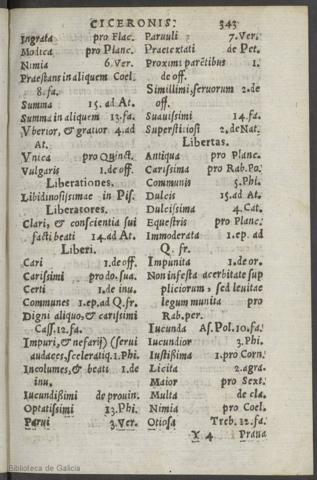 CICERONIS. 343
Ingrata pro Flac.
Modica pro Planc.
Nimia 6.Ver.
Præstans in aliquem Coel.
8.fa.
Summa 15.ad At.
Summa in aliquem 13.fa.
Vberior, & gratior 4.ad
At.
Vnica pro Quinct.
Vulgaris 1.de off.
Liberationes.
Libidinosissimæ in Pis.
Liberatores.
Clari, & conscientia sui
facti beati 14.ad At.
Liberi.
Cari 1.de off.
Carissimi pro do.sua.
Certi 1.de inu.
Communes 1.ep.ad Q.fr.
Digni aliquo,& carissimi
Cass.12.fa.
Impuri,& nefarij) (serui
audaces,sceleratiq.1.Phi.
Incolumes,& beati 1.de
inu.
Iucundißimi de prouin.
Optatissimi 13.Phi.
Parui 3.Ver.
Paruuli 7.Ver.
Prætextati de Pet.
Proximi parētibus 1.
de off.
Simillimi,seruorum 2.de
off.
Suauissimi 14.fa.
Superstitiosi 2.de Nat.
Libertas.
Antiqua pro Planc.
Carissima pro Rab.Po.
Communis 5.Phi.
Dulcis 15.ad At.
Dulcissima 4.Cat.
Equestris pro Planc.
Immoderata 1.ep.ad
Q.fr.
Impunita 1.de or.
Non infesta acerbitate sup
pliciorum, sed leuitate
legum munita pro
Rab.per.
Iucunda As.Pol.10.fa.
Iucundior 3.Phi.
Iustißima 1.pro Corn.
Licita 2.agra.
Maior pro Sext.
Multa de cla.
Nimia pro Coel.
Otiosa Treb.12.fa.
Y 4 Praua
Biblioteca de Galicia